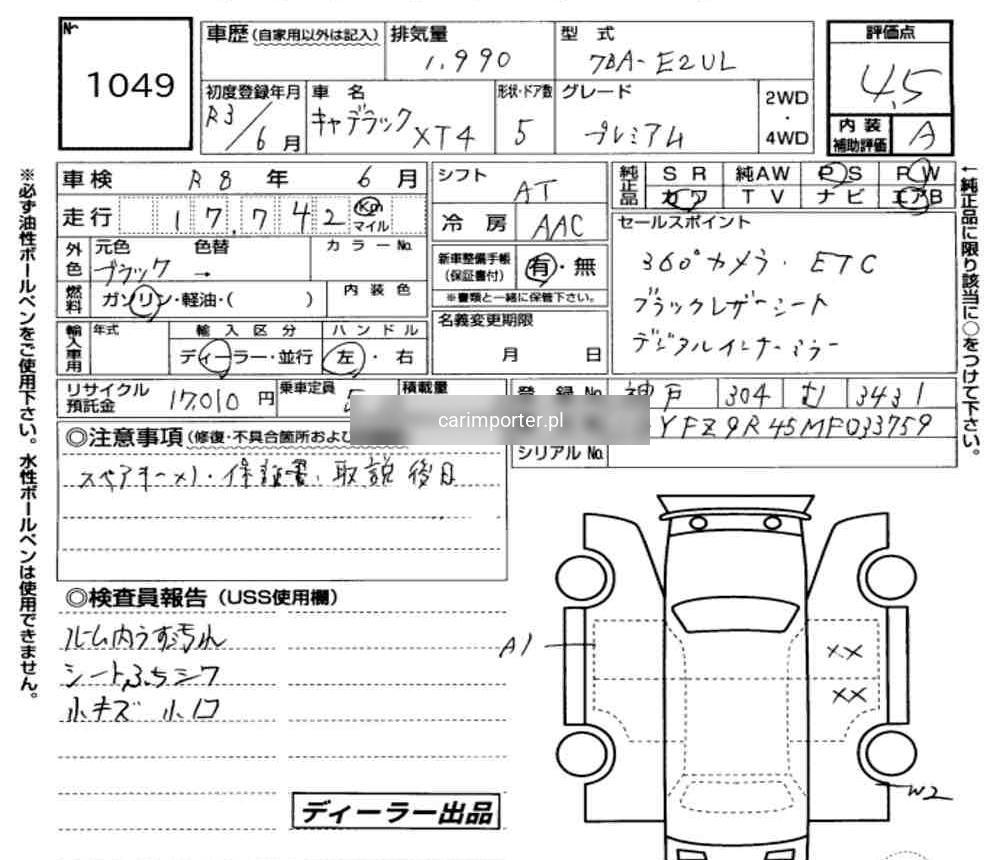 No. 1049
車歴 (自家用以外は記入) 排気量 1.990
型式 7BA-E2UL
評価点 4.5
内装補助評価 A
初度登録年月 R3/6月
車名 キャデラック XT4
形状・ドア数 5
グレード プレミアム
2WD・4WD
車検 R8年 6月
走行 17,742 Km マイル
外色 元色 ブラック 色替 → カラーNo.
燃料 ガソリン・軽油・( ) 内装色
輸入車用 年式 輸入区分 ディーラー・並行 ハンドル 左・右
シフト AT
冷房 AAC
新車整備手帳(保証書付) 有・無
※書類と一緒に保管下さい。
名義変更期限 月 日
純正品 SR 純AW PS PW
カワ TV ナビ エアB
セールスポイント
360°カメラ. ETC
ブラックレザーシート
デジタルインナーミラー
リサイクル預託金 17,010円 乗車定員 5 積載量
登録No. 神戸 304 む 3431
YFZ9R45MF033759
シリアルNo.
carimporter.pl
◎注意事項 (修復・不具合箇所およ
スペアキー×1・保証書、取説 後日
◎検査員報告 (USS使用欄)
ルーム内うす汚れ
シートふちシワ
小キズ 小凹
ディーラー出品
A1
XX
XX
W2
※必ず油性ボールペンをご使用下さい。水性ボールペンは使用できません。
←純正品に限り該当に○をつけて下さい。